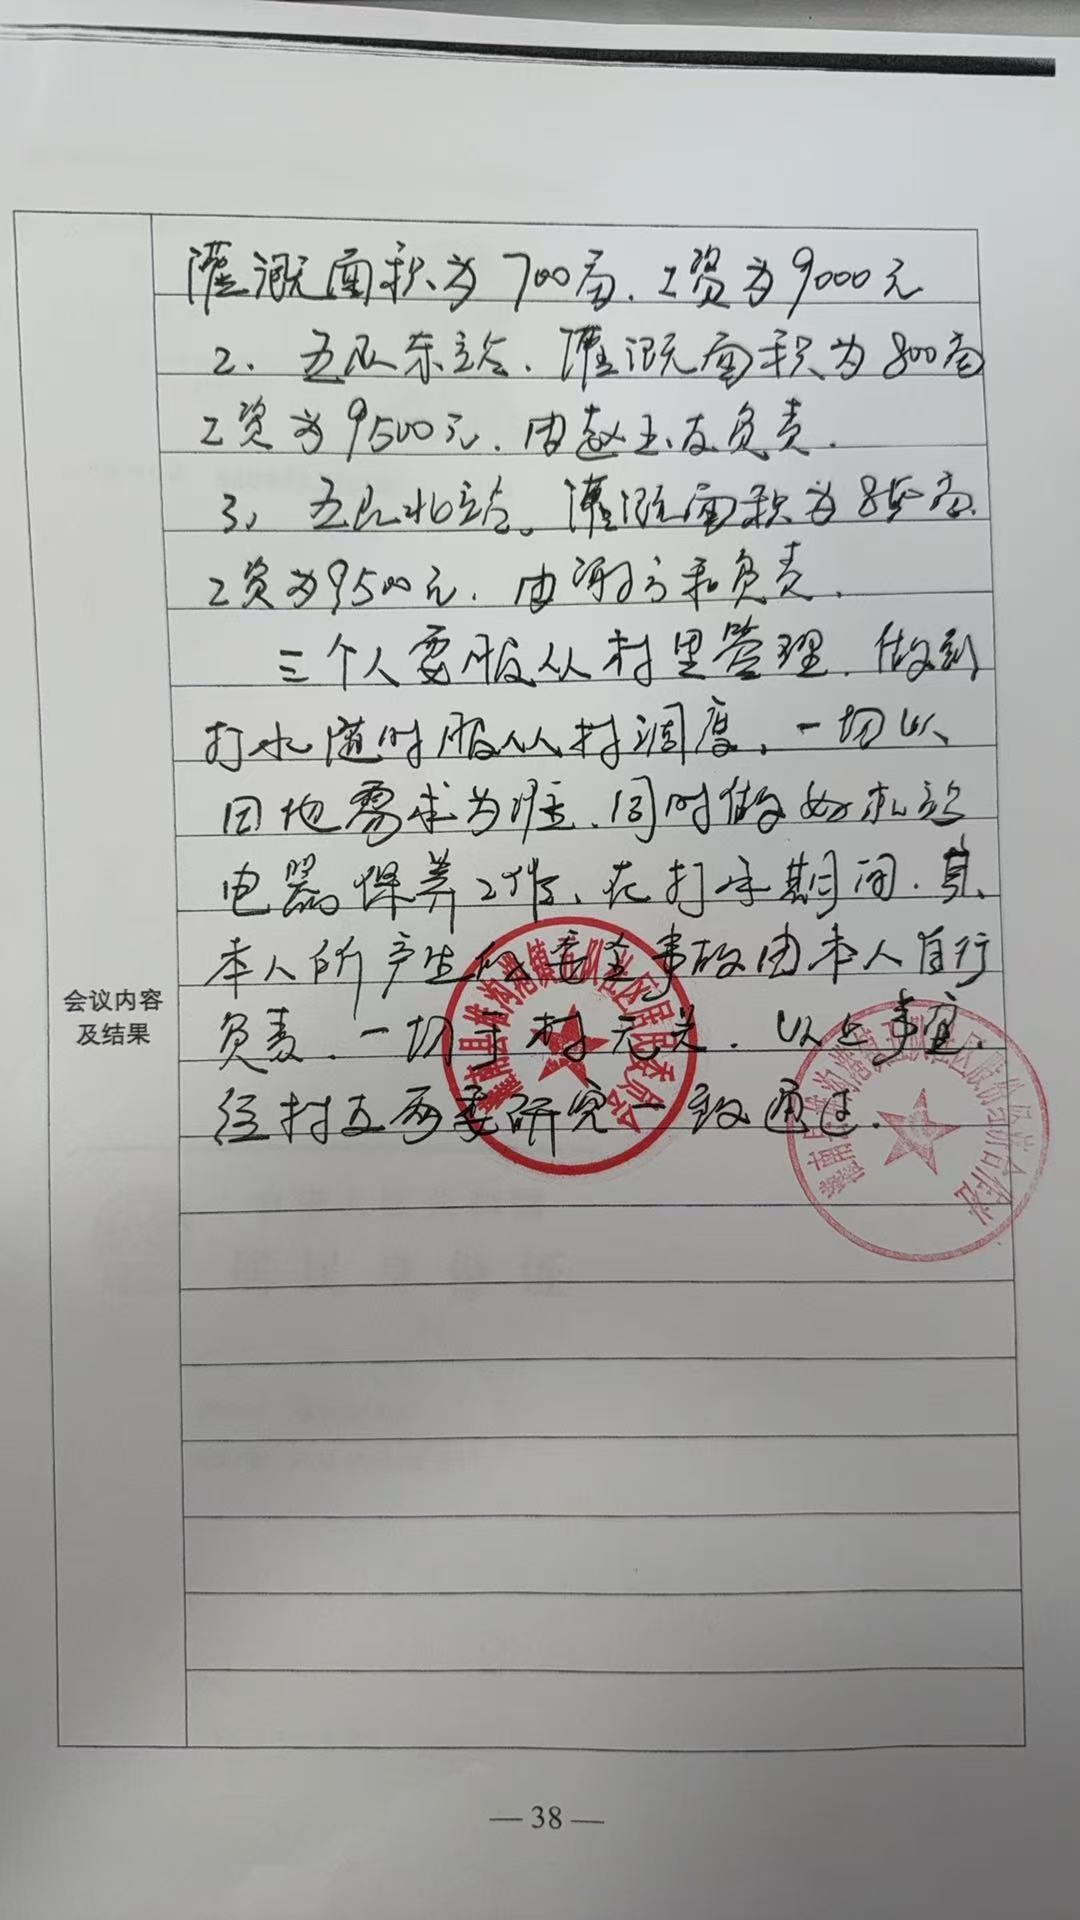 灌溉面积为700亩.工资为9000元
2.五队东站.灌溉面积为800亩
工资为9500元.由赵玉友负责.
3、五队北站。灌溉面积为850亩.
工资为9500元.由谢方和负责.
三个人要服从村里管理.做到
打水随时服从村调度、一切以
田地需求为准.同时做好机泵
电器保养工作、在打水期间.其
本人所产生的安全事故由本人自行
会议内容
及结果
负责.一切于村无关.以上事宜.
经村支两委研究一致通过.
— 38 —